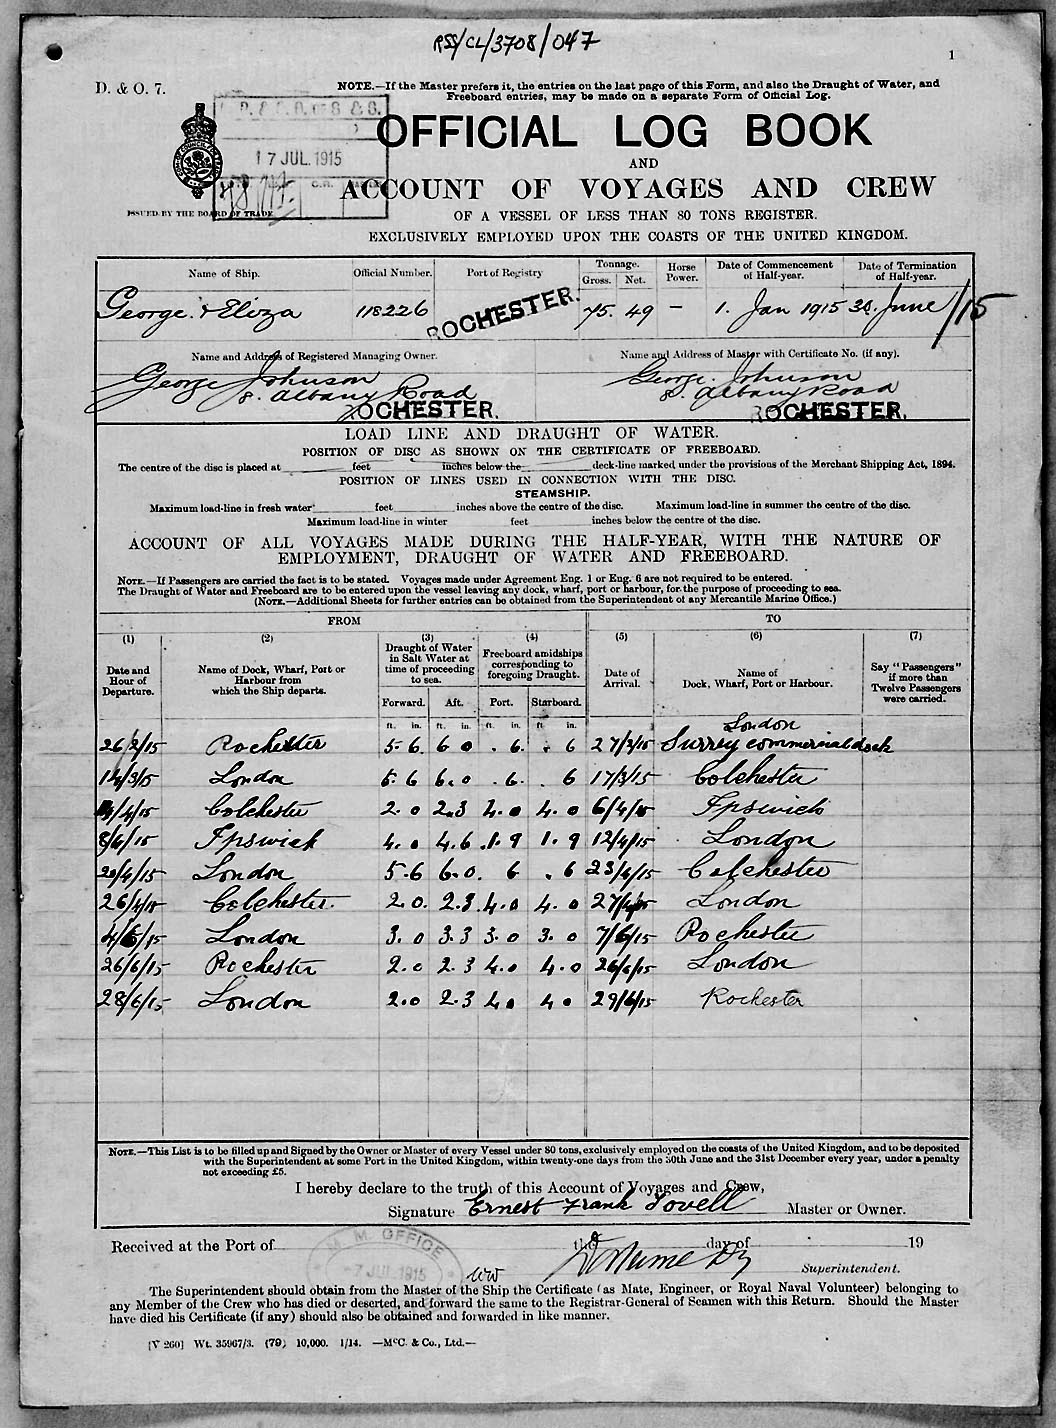 RSS/CL/3708/047
1
D. & O. 7.
NOTE.—If the Master prefers it, the entries on the last page of this Form, and also the Draught of Water, and
Freeboard entries, may be made on a separate Form of Official Log.
17 JUL. 1915
OFFICIAL LOG BOOK
AND
ACCOUNT OF VOYAGES AND CREW
ISSUED BY THE BOARD OF TRADE
OF A VESSEL OF LESS THAN 80 TONS REGISTER.
EXCLUSIVELY EMPLOYED UPON THE COASTS OF THE UNITED KINGDOM.
Name of Ship. Official Number. Port of Registry Tonnage. Gross. Net. Horse Power. Date of Commencement of Half-year. Date of Termination of Half-year.
George & Eliza 118226 ROCHESTER. 75. 49 — 1. Jan 1915 30. June /15
Name and Address of Registered Managing Owner. Name and Address of Master with Certificate No. (if any).
George Johnson George Johnson
8. Albany Road 8. Albany Road
ROCHESTER. ROCHESTER.
LOAD LINE AND DRAUGHT OF WATER.
POSITION OF DISC AS SHOWN ON THE CERTIFICATE OF FREEBOARD.
The centre of the disc is placed at feet inches below the deck-line marked under the provisions of the Merchant Shipping Act, 1894.
POSITION OF LINES USED IN CONNECTION WITH THE DISC.
STEAMSHIP.
Maximum load-line in fresh water feet inches above the centre of the disc. Maximum load-line in summer the centre of the disc.
Maximum load-line in winter feet inches below the centre of the disc.
ACCOUNT OF ALL VOYAGES MADE DURING THE HALF-YEAR, WITH THE NATURE OF
EMPLOYMENT, DRAUGHT OF WATER AND FREEBOARD.
NOTE.—If Passengers are carried the fact is to be stated. Voyages made under Agreement Eng. 1 or Eng. 6 are not required to be entered.
The Draught of Water and Freeboard are to be entered upon the vessel leaving any dock, wharf, port or harbour, for the purpose of proceeding to sea.
(NOTE.—Additional Sheets for further entries can be obtained from the Superintendent of any Mercantile Marine Office.)
FROM TO
(1) (2) (3) (4) (5) (6) (7)
Date and Hour of Departure. Name of Dock, Wharf, Port or Harbour from which the Ship departs. Draught of Water in Salt Water at time of proceeding to sea. Freeboard amidships corresponding to foregoing Draught. Date of Arrival. Name of Dock, Wharf, Port or Harbour. Say "Passengers" if more than Twelve Passengers were carried.
Forward. Aft. Port. Starboard.
ft. in. ft. in. ft. in. ft. in.
London
26/2/15 Rochester 5. 6. 6 0 . 6. . 6 27/3/15 Surrey commercial dock
14/3/15 London 5. 6 6. 0 . 6. . 6 17/3/15 Colchester
4/4/15 Colchester 2. 0 2. 3 4. 0 4. 0 6/4/15 Ipswich
8/4/15 Ipswich 4. 0 4. 6 1. 9 1. 9 12/4/15 London
20/4/15 London 5. 6 6. 0. 6 . 6 23/4/15 Colchester
26/4/15 Colchester. 2. 0. 2. 3 4. 0 4. 0 27/4/15 London
4/6/15 London 3. 0 3. 3 3. 0 3. 0 7/6/15 Rochester
26/6/15 Rochester 2. 0 2. 3 4. 0 4. 0 26/6/15 London
28/6/15 London 2. 0 2. 3 4 0 4 0 29/6/15 Rochester
NOTE.—This List is to be filled up and Signed by the Owner or Master of every Vessel under 80 tons, exclusively employed on the coasts of the United Kingdom, and to be deposited
with the Superintendent at some Port in the United Kingdom, within twenty-one days from the 30th June and the 31st December every year, under a penalty
not exceeding £5.
I hereby declare to the truth of this Account of Voyages and Crew,
Signature Ernest Frank Tovell Master or Owner.
Received at the Port of the day of 19
M. M. OFFICE
7 JUL 1915
Superintendent.
The Superintendent should obtain from the Master of the Ship the Certificate (as Mate, Engineer, or Royal Naval Volunteer) belonging to
any Member of the Crew who has died or deserted, and forward the same to the Registrar-General of Seamen with this Return. Should the Master
have died his Certificate (if any) should also be obtained and forwarded in like manner.
[V 260] Wt. 35967/3. (79) 10,000. 1/14. —McC. & Co., Ltd.—